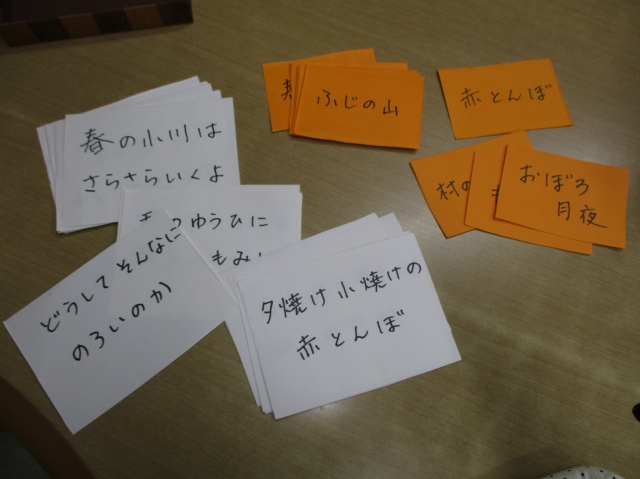 春の小川は
さらさらいくよ
ゆうひに
もみ
どうしてそんなに
のろいのか
夕焼け小焼けの
赤とんぼ
ふじの山
赤とんぼ
村の
おぼろ
月夜